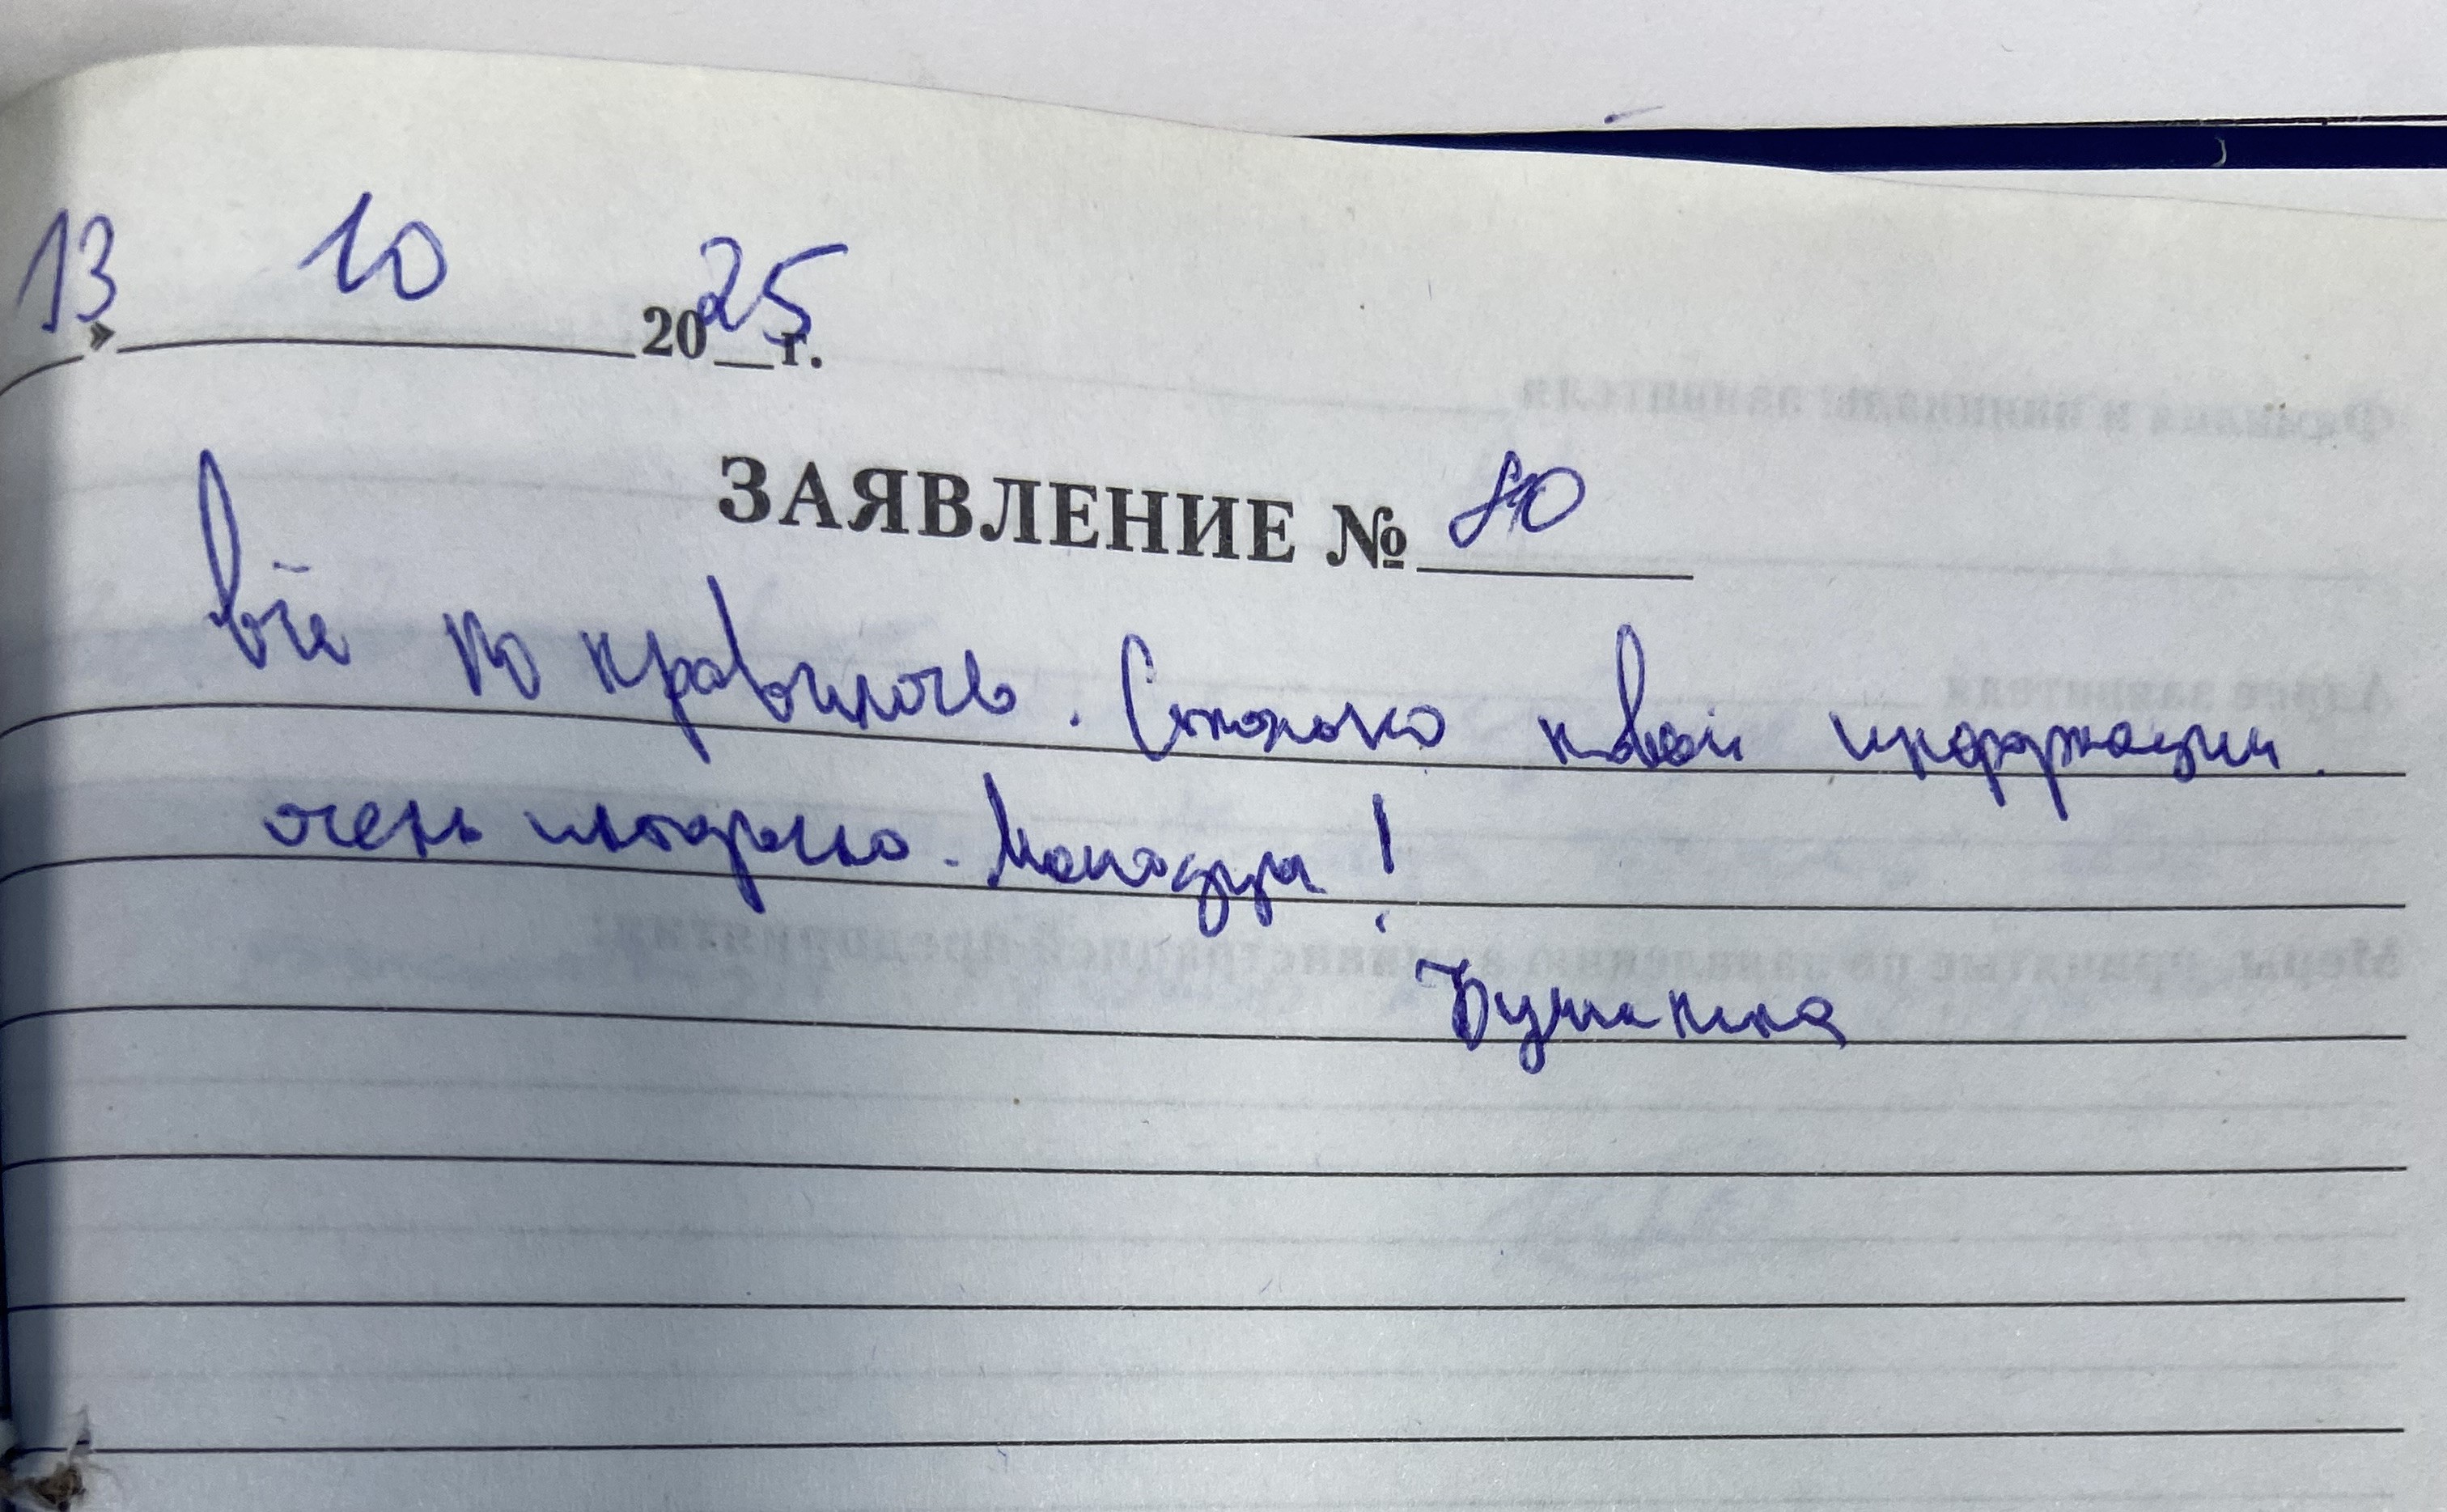 13» 10 2025 г.
ЗАЯВЛЕНИЕ № 80
Всё понравилось. Столько новой информации.
очень интересно. Молодцы!